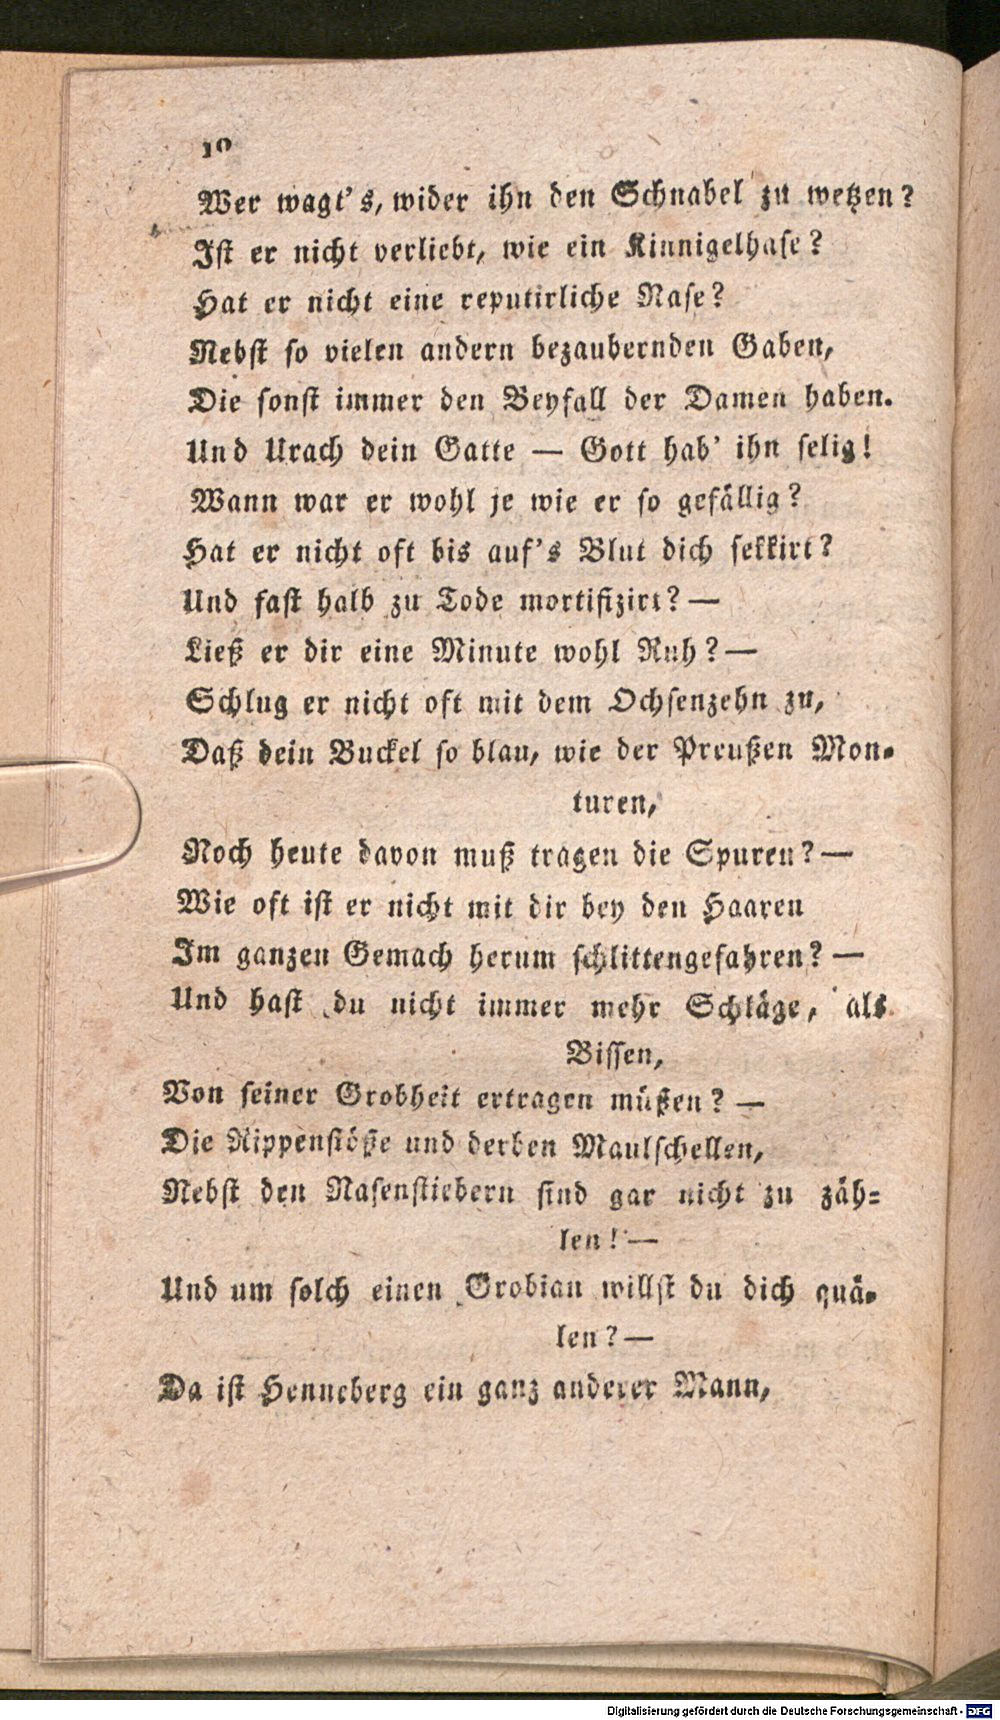 10
Wer wagt's, wider ihn den Schnabel zu wetzen?
Ist er nicht verliebt, wie ein Kinnigelhase?
Hat er nicht eine reputirliche Nase?
Nebst so vielen andern bezaubernden Gaben,
Die sonst immer den Beyfall der Damen haben.
Und Urach dein Gatte — Gott hab' ihn selig!
Wann war er wohl je wie er so gefällig?
Hat er nicht oft bis auf's Blut dich sekkirt?
Und fast halb zu Tode mortifizirt? —
Ließ er dir eine Minute wohl Ruh? —
Schlug er nicht oft mit dem Ochsenzehn zu,
Daß dein Buckel so blau, wie der Preußen Mon-
turen,
Noch heute davon muß tragen die Spuren? —
Wie oft ist er nicht mit dir bey den Haaren
Im ganzen Gemach herum schlittengefahren? —
Und hast du nicht immer mehr Schläge, als
Bissen,
Von seiner Grobheit ertragen müßen? —
Die Rippenstöße und derben Maulschellen,
Nebst den Nasenstiebern sind gar nicht zu zäh-
len! —
Und um solch einen Grobian willst du dich quä-
len? —
Da ist Henneberg ein ganz anderer Mann,
Digitalisierung gefördert durch die Deutsche Forschungsgemeinschaft - DFG